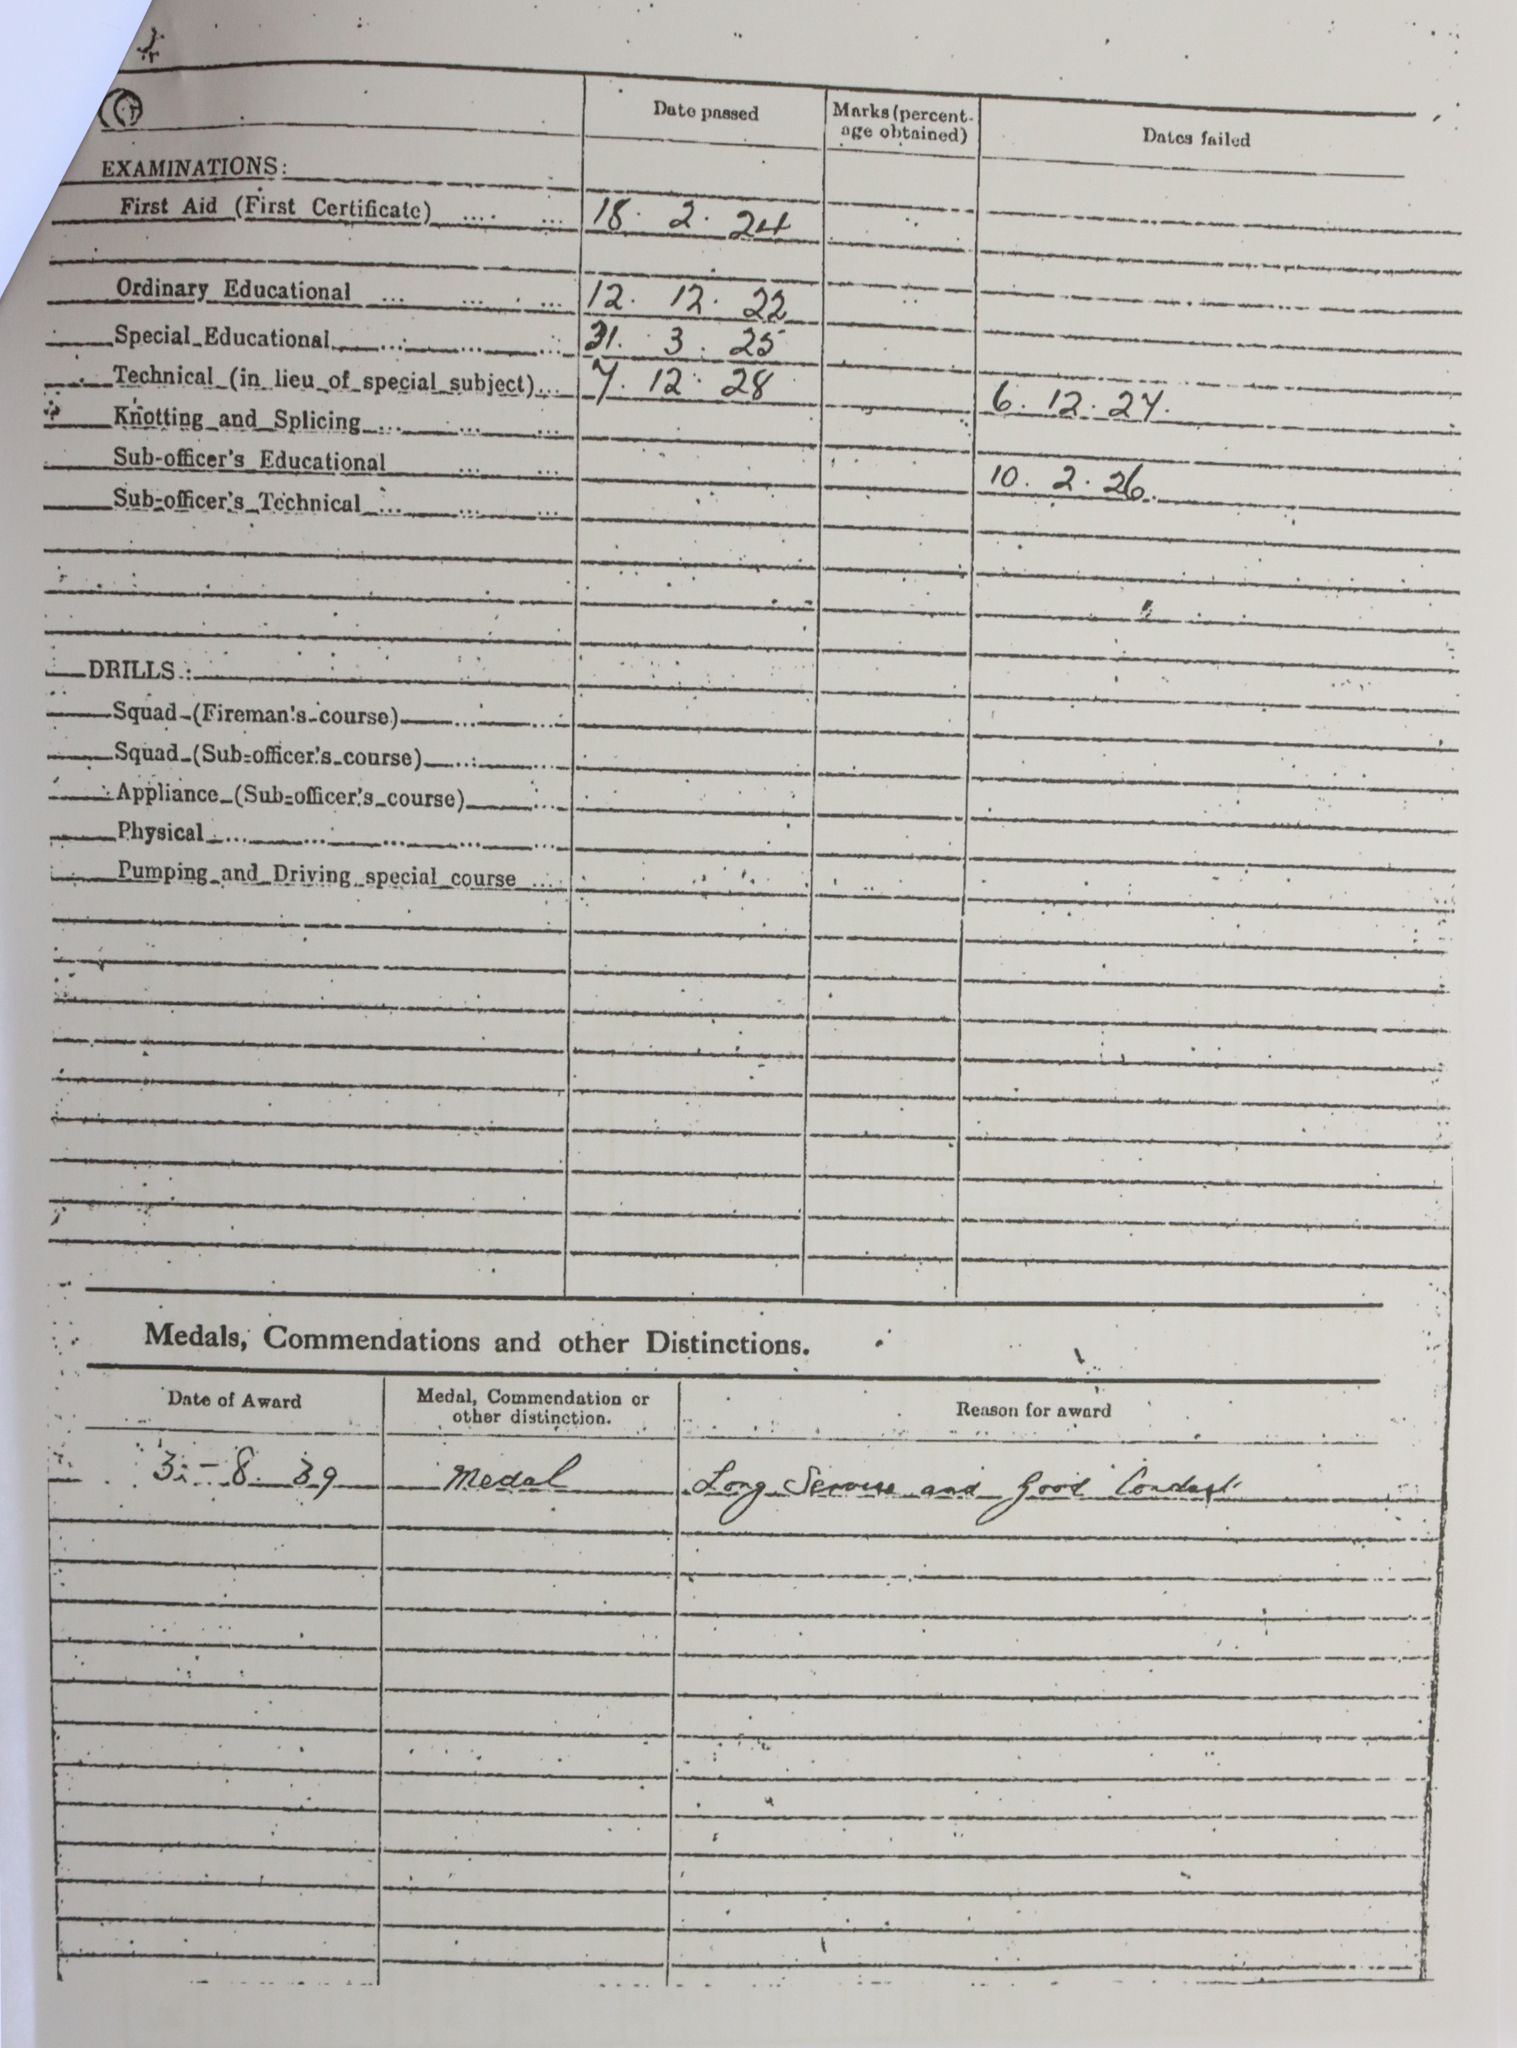 Date passed Marks (percent- Dates failed
age obtained)
EXAMINATIONS:
First Aid (First Certificate) ... ... 18. 2. 24
Ordinary Educational ... ... ... 12. 12. 22
Special Educational ... ... ... 31. 3. 25
Technical (in lieu of special subject)... 7. 12. 28 6. 12. 27.
Knotting and Splicing ... ... ...
Sub-officer's Educational ... ... 10. 2. 26.
Sub-officer's Technical ... ... ...
DRILLS:
Squad (Fireman's course) ... ...
Squad (Sub-officer's course) ... ...
Appliance (Sub-officer's course) ...
Physical ... ... ... ... ...
Pumping and Driving special course ...
Medals, Commendations and other Distinctions.
Date of Award Medal, Commendation or Reason for award
other distinction.
8. 39 Medal Long Service and Good Conduct